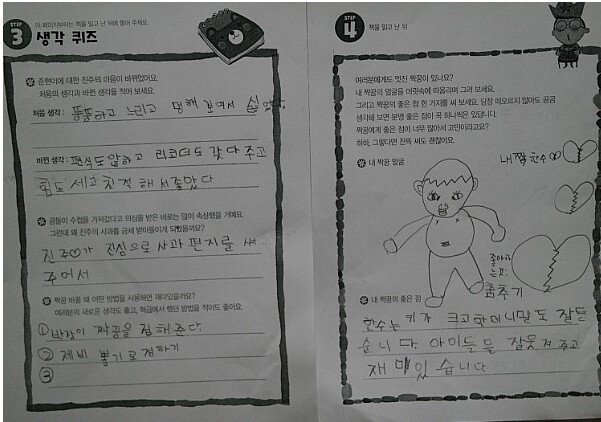 STEP 3
이 페이지부터는 책을 읽고 난 뒤에 풀어 주세요.
생각 퀴즈
준현이에 대한 진주의 마음이 바뀌었어요.
처음의 생각과 바뀐 생각을 적어 보세요.
처음 생각: 뚱뚱하고 느리고 멍해 보여서 싫었다
바뀐 생각: 편식도 안하고 리코더도 갖다 주고
힘도 세고 친절해서 좋았다
곰돌이 수첩을 가져갔다고 의심을 받은 바로는 많이 속상했을 거예요.
그런데 왜 진주의 사과를 금세 받아들이게 되었을까요?
진주가 진심으로 사과 편지를 써
주어서
짝꿍 바꿀 때 어떤 방법을 사용하면 재미있을까요?
여러분의 새로운 생각도 좋고, 학급에서 했던 방법을 적어도 좋아요.
① 반장이 짝꿍을 정해준다
② 제비 뽑기로 정하기
③
STEP 4
책을 읽고 난 뒤
여러분에게도 멋진 짝꿍이 있나요?
내 짝꿍의 얼굴을 머릿속에 떠올리며 그려 보세요.
그리고 짝꿍의 좋은 점 한 가지를 써 보세요. 당장 떠오르지 않아도 곰곰
생각해 보면 분명 좋은 점이 꼭 하나씩은 있답니다.
짝꿍에게 좋은 점이 너무 많아서 고민이라고요?
하하, 그렇다면 전부 써도 괜찮아요.
내 짝꿍 얼굴
내짝 한수
좋아하
는것:
춤추기
내 짝꿍의 좋은 점
한수는 키가 크고
잘듣
습니다 아이들을 잘웃겨 주고
재미있습니다